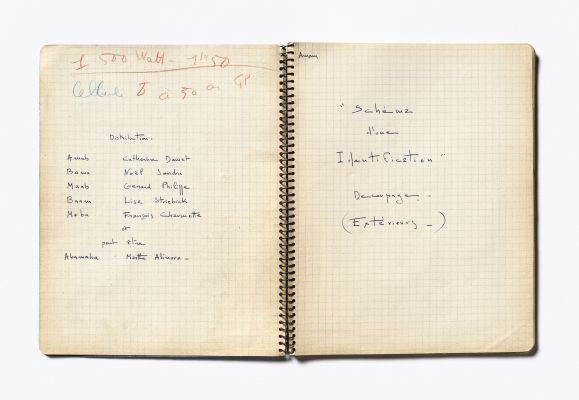 1 500 Watt - 1h50
Cellule 8 à 50 GP
Distribution.
Amab Catherine Duret
Bama Noël Sandre
Maab Gérard Philippe
Baam Lise
Moba François Chaumette
et
peut être
Abamaba Marthe Alimora -
Amam
"Schéma
d'une
Identification"
Découpage.
(Extérieurs -)